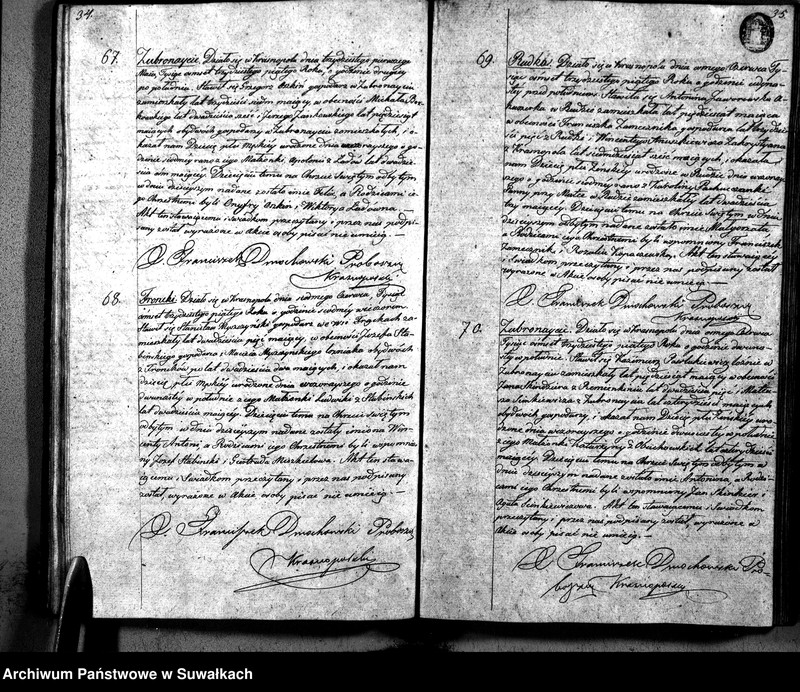 34.
67. Zubronaycie. Działo się w Krasnopolu dnia trzydziestego pierwszego
Maja, Tysiąc ośmset trzydziestego piątego Roku, o godzinie drugiey
po południu. Stawił się Grzegorz gospodarz w Zubronayciu
zamieszkały lat trzydzieści siedm maiący, w obecności Michała
lat dwadzieścia sześć i Jerzego lat pięćdziesiąt
maiących obydwóch gospodarzy w Zubronayciu zamieszkałych, i o-
kazał nam Dziecię płci Męzkiey urodzone dnia wczorayszego o go-
dzinie siódmey rano z iego Małżonki Apolonii z lat dwadzie-
ścia ośm maiącey. Dziecięciu temu na Chrzcie Świętym odbytym
w dniu dzisieyszym nadane zostało imie Felix, a Rodzicami ie-
go Chrzestnemi byli Onufry i Wiktorya
Akt ten stawaiącemu i Świadkom przeczytany i przez nas podpi-
sany został wyrażone w Akcie osoby pisać nie umieią. —
X. Franciszek Dmochowski Proboszcz
Krasnopolski
68. Froncki. Działo się w Krasnopolu dnia siódmego Czerwca, Tysiąc
ośmset trzydziestego piątego Roku, o godzinie siódmey wieczorem.
Stawił się Stanisław Myszyński gospodarz we wsi za-
mieszkały lat dwadzieścia pięć maiący, w obecności Józefa
gospodarza i Macieia Myszyńskiego obydwóch
z Fronców po lat dwadzieścia dwa maiących, i okazał nam
dziecię płci Męzkiey urodzone dnia wczorayszego o godzinie
dwunastey w południe z iego Małżonki Ludwiki z
lat dwadzieścia maiącey. Dziecięciu temu na Chrzcie Świętym
odbytym w dniu dzisieyszym nadane zostały imiona Win-
centy Antoni, a Rodzicami iego Chrzestnemi byli wspomnio-
ny Józef i Gertruda Akt ten stawa-
iącemu i Świadkom przeczytany i przez nas podpisany
został, wyrażone w Akcie osoby pisać nie umieią. —
X. Franciszek Dmochowski Proboszcz
Krasnopolski
35.
69. Rudka. Działo się w Krasnopolu dnia ósmego Czerwca Ty-
siąc ośmset trzydziestego piątego Roku o godzinie iedyna-
stey przed południem. Stawiła się Antonina Jaworowska A-
kuszerka w Rudce zamieszkała lat pięćdziesiąt maiąca
w obecności Franciszka Zamecznika gospodarza lat trzydzie-
ści pięć z Rudki i Wincentego Zakrystyana
z Krasnopola lat siedmdziesiąt sześć maiących, i okazała
nam Dziecię płci Żenskiey urodzone w Rudce dnia wczoray-
szego o godzinie siódmey rano z Karoliny
Panny przy Matce w Rudce zamieszkałey lat dwadzieścia
trzy maiącey. Dziecięciu temu na Chrzcie Świętym w dniu
dzisieyszym odbytym nadane zostało imie Małgorzata
a Rodzicami iego Chrzestnemi byli wspomniony Franciszek
Zamecznik i Rozalia Akt ten stawaiącey
i Świadkom przeczytany i przez nas podpisany został
wyrażone w Akcie osoby pisać nie umieią. —
X. Franciszek Dmochowski Proboszcz
Krasnopolski
70. Zubronaycie. Działo się w Krasnopolu dnia ósmego Czerwca
Tysiąc ośmset trzydziestego piątego Roku o godzinie dwuna-
stey w południe. Stawił się Kazimierz w
Zubronayciu zamieszkały lat pięćdziesiąt maiący w obecności
Jana z lat dwadzieścia pięć i Mateu-
sza Sinkiewicza z Zubronaycia lat czterdzieści maiących
obydwóch gospodarzy, i okazał nam Dziecię płci Żenskiey uro-
dzone dnia wczorayszego o godzinie dwunastey w południe
z iego Małżonki Katarzyny z lat czterdzieści
maiącey. Dziecięciu temu na Chrzcie Świętym odbytym w
dniu dzisieyszym nadane zostało imie Antonina, a Rodzi-
cami iego Chrzestnemi byli wspomniony Jan i
Agata Sinkiewiczowa. Akt ten stawaiącemu i Świadkom
przeczytany i przez nas podpisany został, wyrażone w
Akcie osoby pisać nie umieią. —
X. Franciszek Dmochowski Pro-
boszcz Krasnopolski
Archiwum Państwowe w Suwałkach